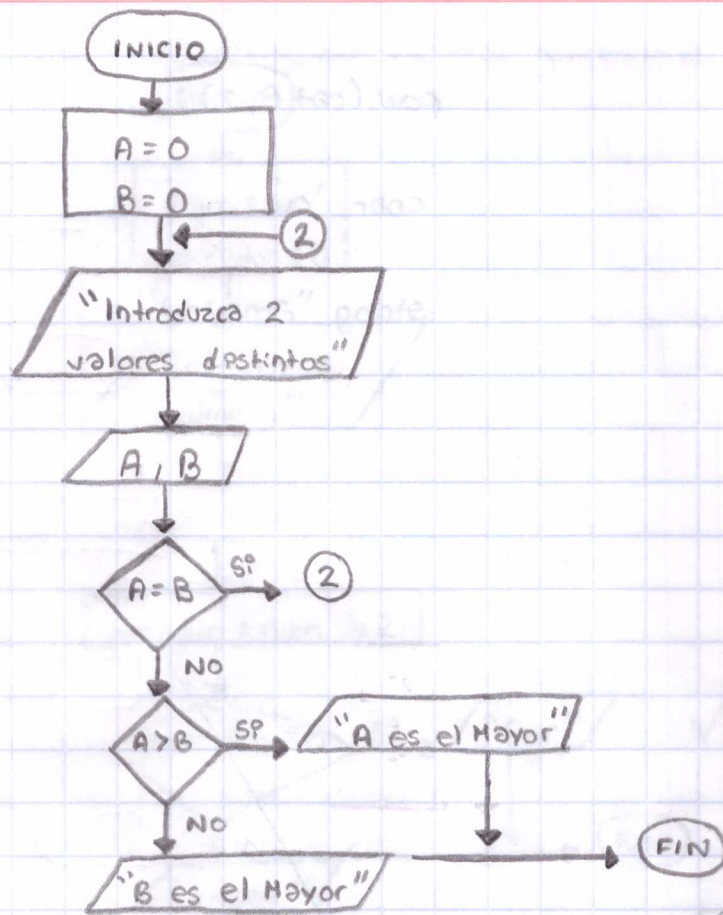 INICIO
A = 0
B = 0
2
"Introduzca 2
valores distintos"
A, B
A = B
Si
2
NO
A > B
Si
"A es el Mayor"
NO
"B es el Mayor"
FIN